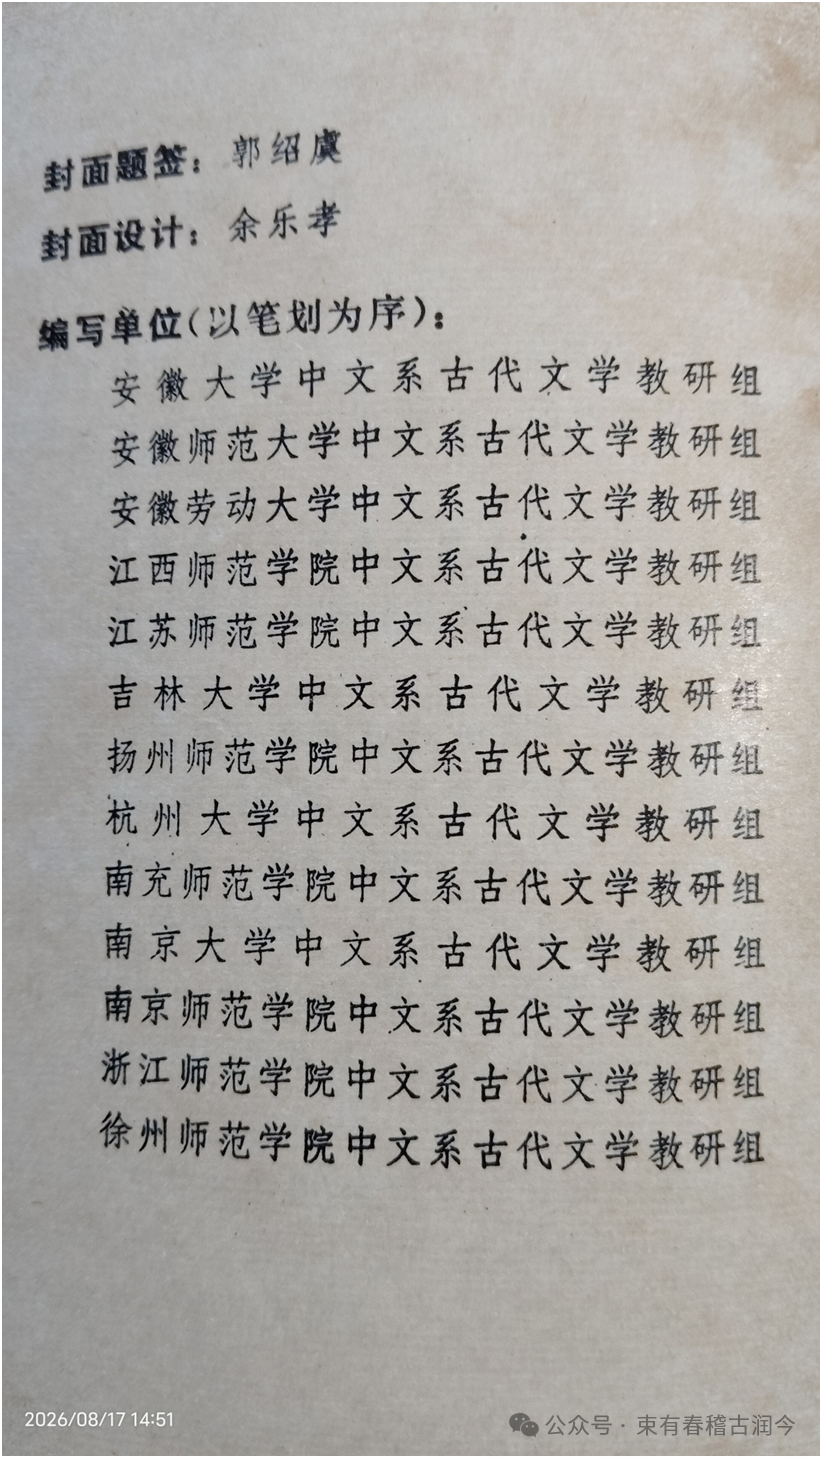 封面题签：郭绍虞
封面设计：余乐孝
编写单位（以笔划为序）：
安徽大学中文系古代文学教研组
安徽师范大学中文系古代文学教研组
安徽劳动大学中文系古代文学教研组
江西师范学院中文系古代文学教研组
江苏师范学院中文系古代文学教研组
吉林大学中文系古代文学教研组
扬州师范学院中文系古代文学教研组
杭州大学中文系古代文学教研组
南充师范学院中文系古代文学教研组
南京大学中文系古代文学教研组
南京师范学院中文系古代文学教研组
浙江师范学院中文系古代文学教研组
徐州师范学院中文系古代文学教研组
2026/08/17 14:51
公众号·束有春稽古润今